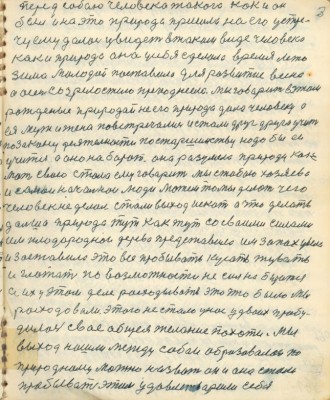 перед собою человека такого как и он
были и на это природа пришла на его
чему дала увидеть в таком виде человека
как и природа она себя сделала время лето
зима молодой поставила для развитие весна
а осень созрелостью преподнесла. Мы говорим в этом
рождение природой на его природа дала человеку
муж и жена повстречались и стали друг друга учит
по закону деятельности по старшинству надо бы
учится а оно наоборот. она разумела природу как
мать своего стала ему говорит мы с тобою хозяева
и самои начальнои люди может только делают чего
человек не делал стали выход искат а что делать
дальше природа тут как тут со своими силами
им плодородное дерево представила им запах дала
и заставила это все пробывать кусать жувать
и глотат по возможности не сил на
их у этом деле расходывать это что было Мы
расходовали этого не стало у нас у двоих
свое общее желание похоти. Мы
выход нашли между собою образовалось по
природному можно назвать он и оно стали
пробывать этим удовлетворили себя